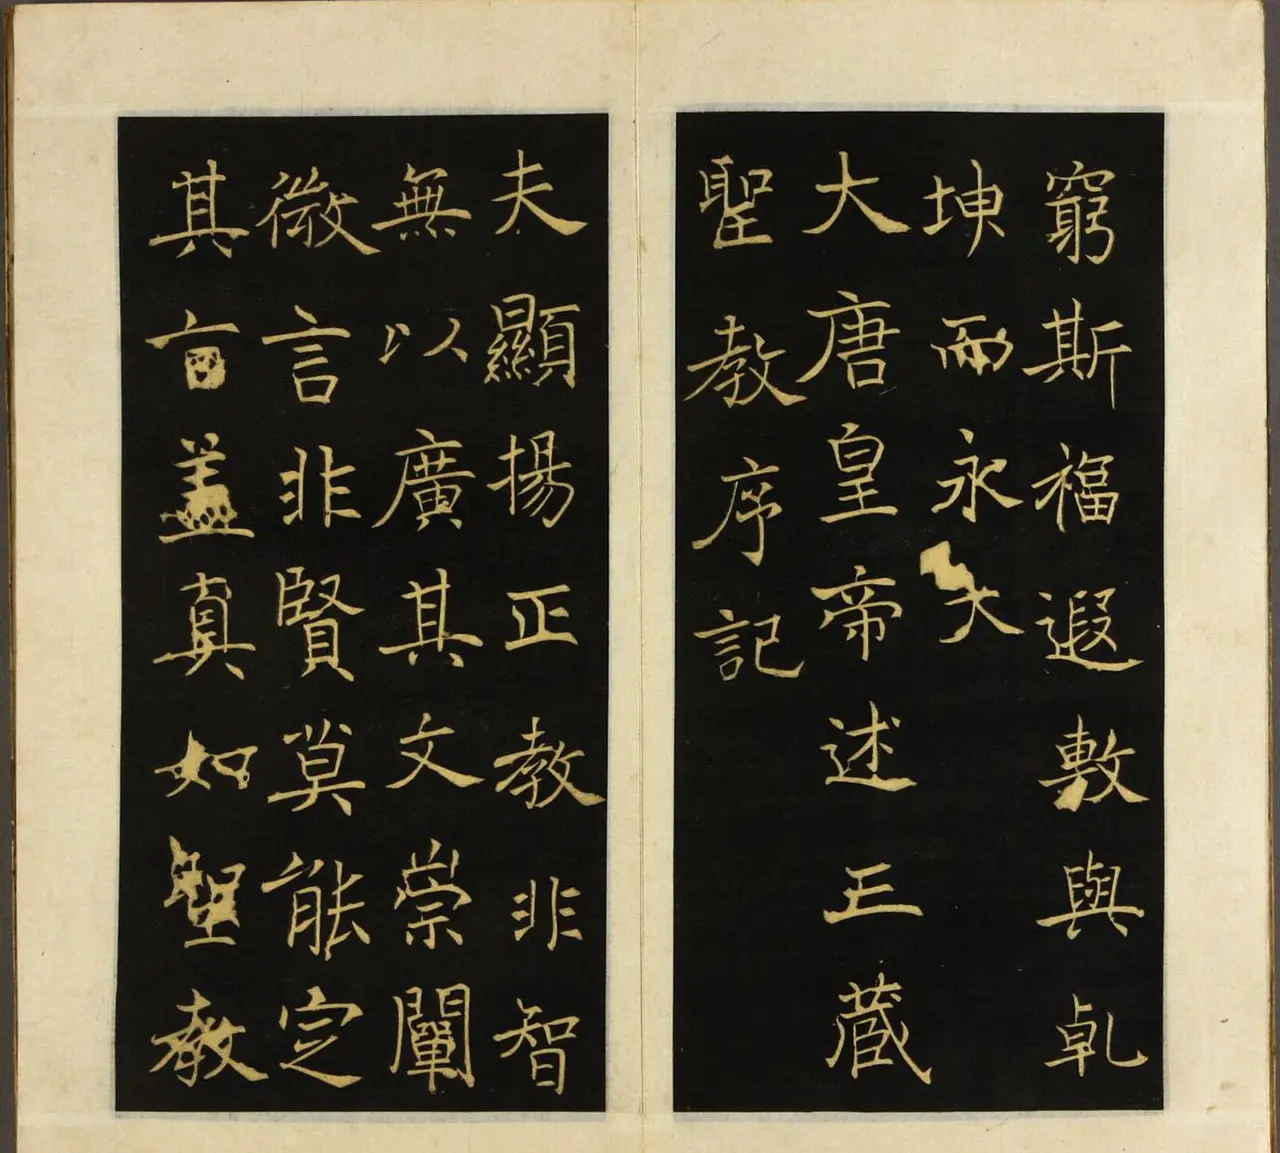 窮斯福遐敷與乹
坤而永大
大唐皇帝述三藏
聖教序記
夫顯揚正教非智
無以廣其文崇闡
微言非賢莫能定
其旨盖真如聖教